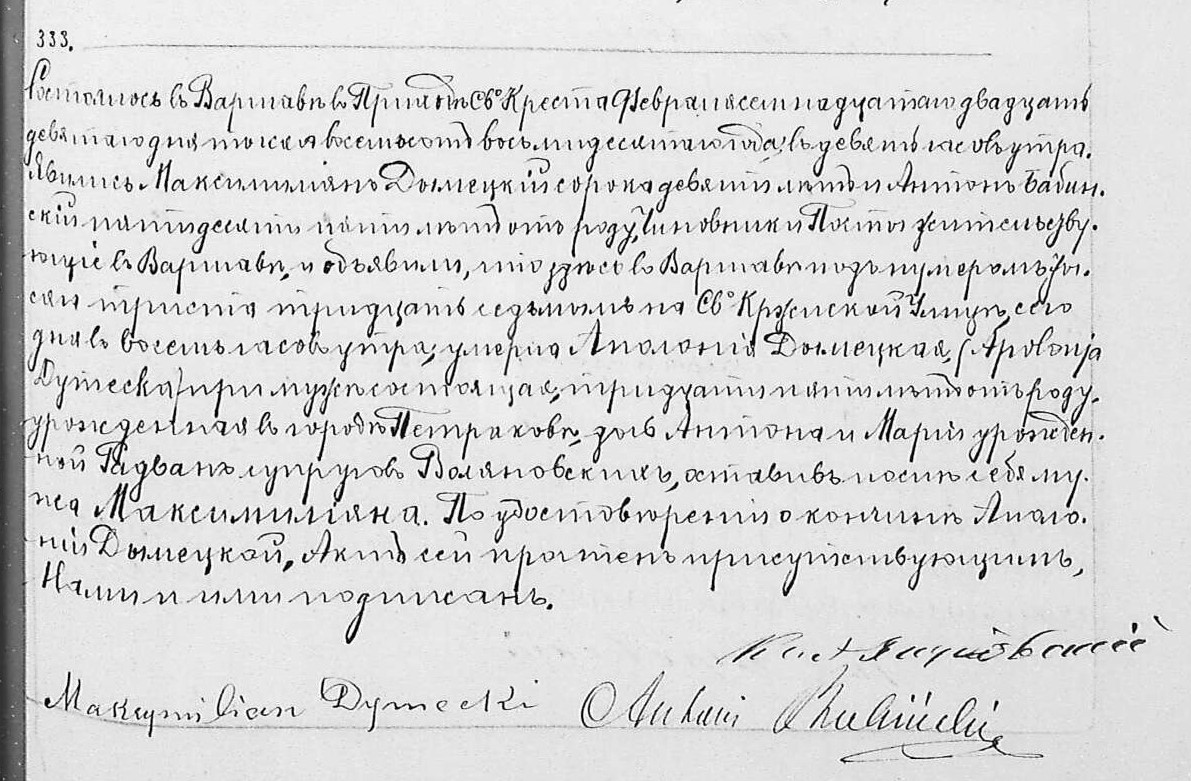 333.
Состоялось въ Варшавѣ въ Приходѣ Св° Креста Февраля семнадцатаго двадцать
девятаго дня тысяча восемьсотъ восьмидесятаго года, въ девять часовъ утра.
Явились Максимиліянъ Дымецкій сорока девяти лѣтъ и Антонъ Бабин-
скій пятидесяти пяти лѣтъ отъ роду, Чиновники Почты жительству-
ющіе въ Варшавѣ, и объявили, что здѣсь въ Варшавѣ подъ нумеромъ ты-
сяча триста тридцать седьмомъ на Св° Кржиской Улицѣ, сего
дня въ восемь часовъ утра, умерла Аполонія Дымецкая, (Apolonja
Dymecka) при мужѣ состоящая, тридцати пяти лѣтъ отъ роду,
урожденная въ городѣ Петраковѣ, дочь Антона и Маріи урожден-
ной супруговъ Воляновскихъ, оставивъ послѣ себя му-
жа Максимиліяна. По удостовѣреніи о кончинѣ Аполо-
ніи Дымецкой, Актъ сей прочтенъ присутствующимъ,
Нами и ими подписанъ.
Maksymilian Dymecki Antoni